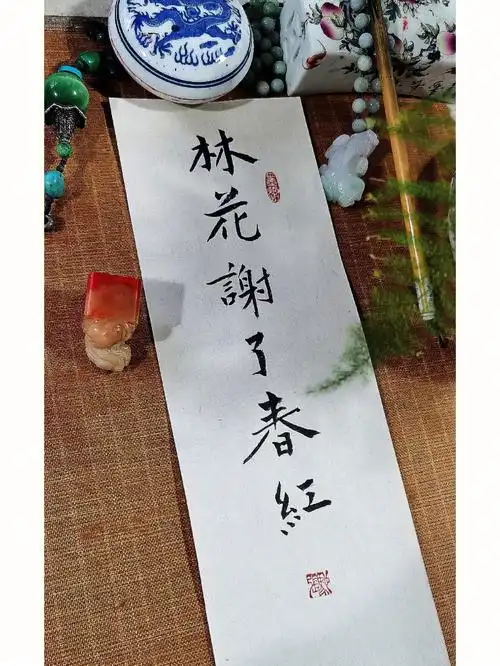 林花謝了春紅